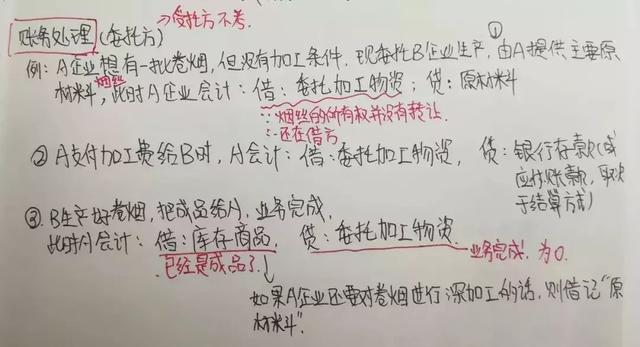 →受托方不考.
账务处理 (委托方)
①
例: A企业想有一批卷烟, 但没有加工条件. 现委托B企业生产, 由A提供主要原
材料, 烟丝 此时A企业会计: 借: 委托加工物资; 贷: 原材料
∵烟丝的所有权并没有转让.
∴还在借方
② A支付加工费给B时, A会计: 借: 委托加工物资, 贷: 银行存款(或
应付账款, 取决
于结算方式)
③. B生产好卷烟, 把成品给A, 业务完成,
此时A会计: 借: 库存商品, 贷: 委托加工物资.
已经是成品了. 业务完成, 为0.
↓
如果A企业还要对卷烟进行深加工的话, 则借记"原
材料".